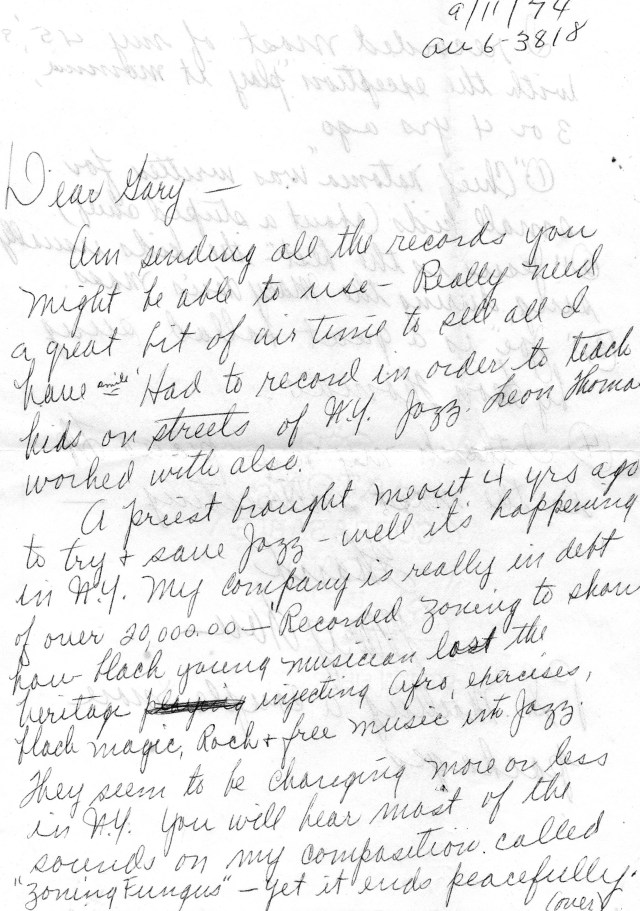 9/11/74
au 6-3818
Dear Gary —
Am sending all the records you
might be able to use — Really need
a great bit of air time to sell all I
have smile Had to record in order to teach
kids on streets of N.Y. Jazz. Leon Thomas
worked with also.
A priest brought me out 4 yrs ago
to try + save Jazz — well it's happening
in N.Y. My company is really in debt
of over 20,000.00 — Recorded Zoning to show
how black young musician lost the
heritage injecting Afro, exercises,
black magic, Rock + free music into Jazz.
They seem to be changing more or less
in N.Y. You will hear most of the
sounds on my composition called
"Zoning Fungus" — yet it ends peacefully.
(over)